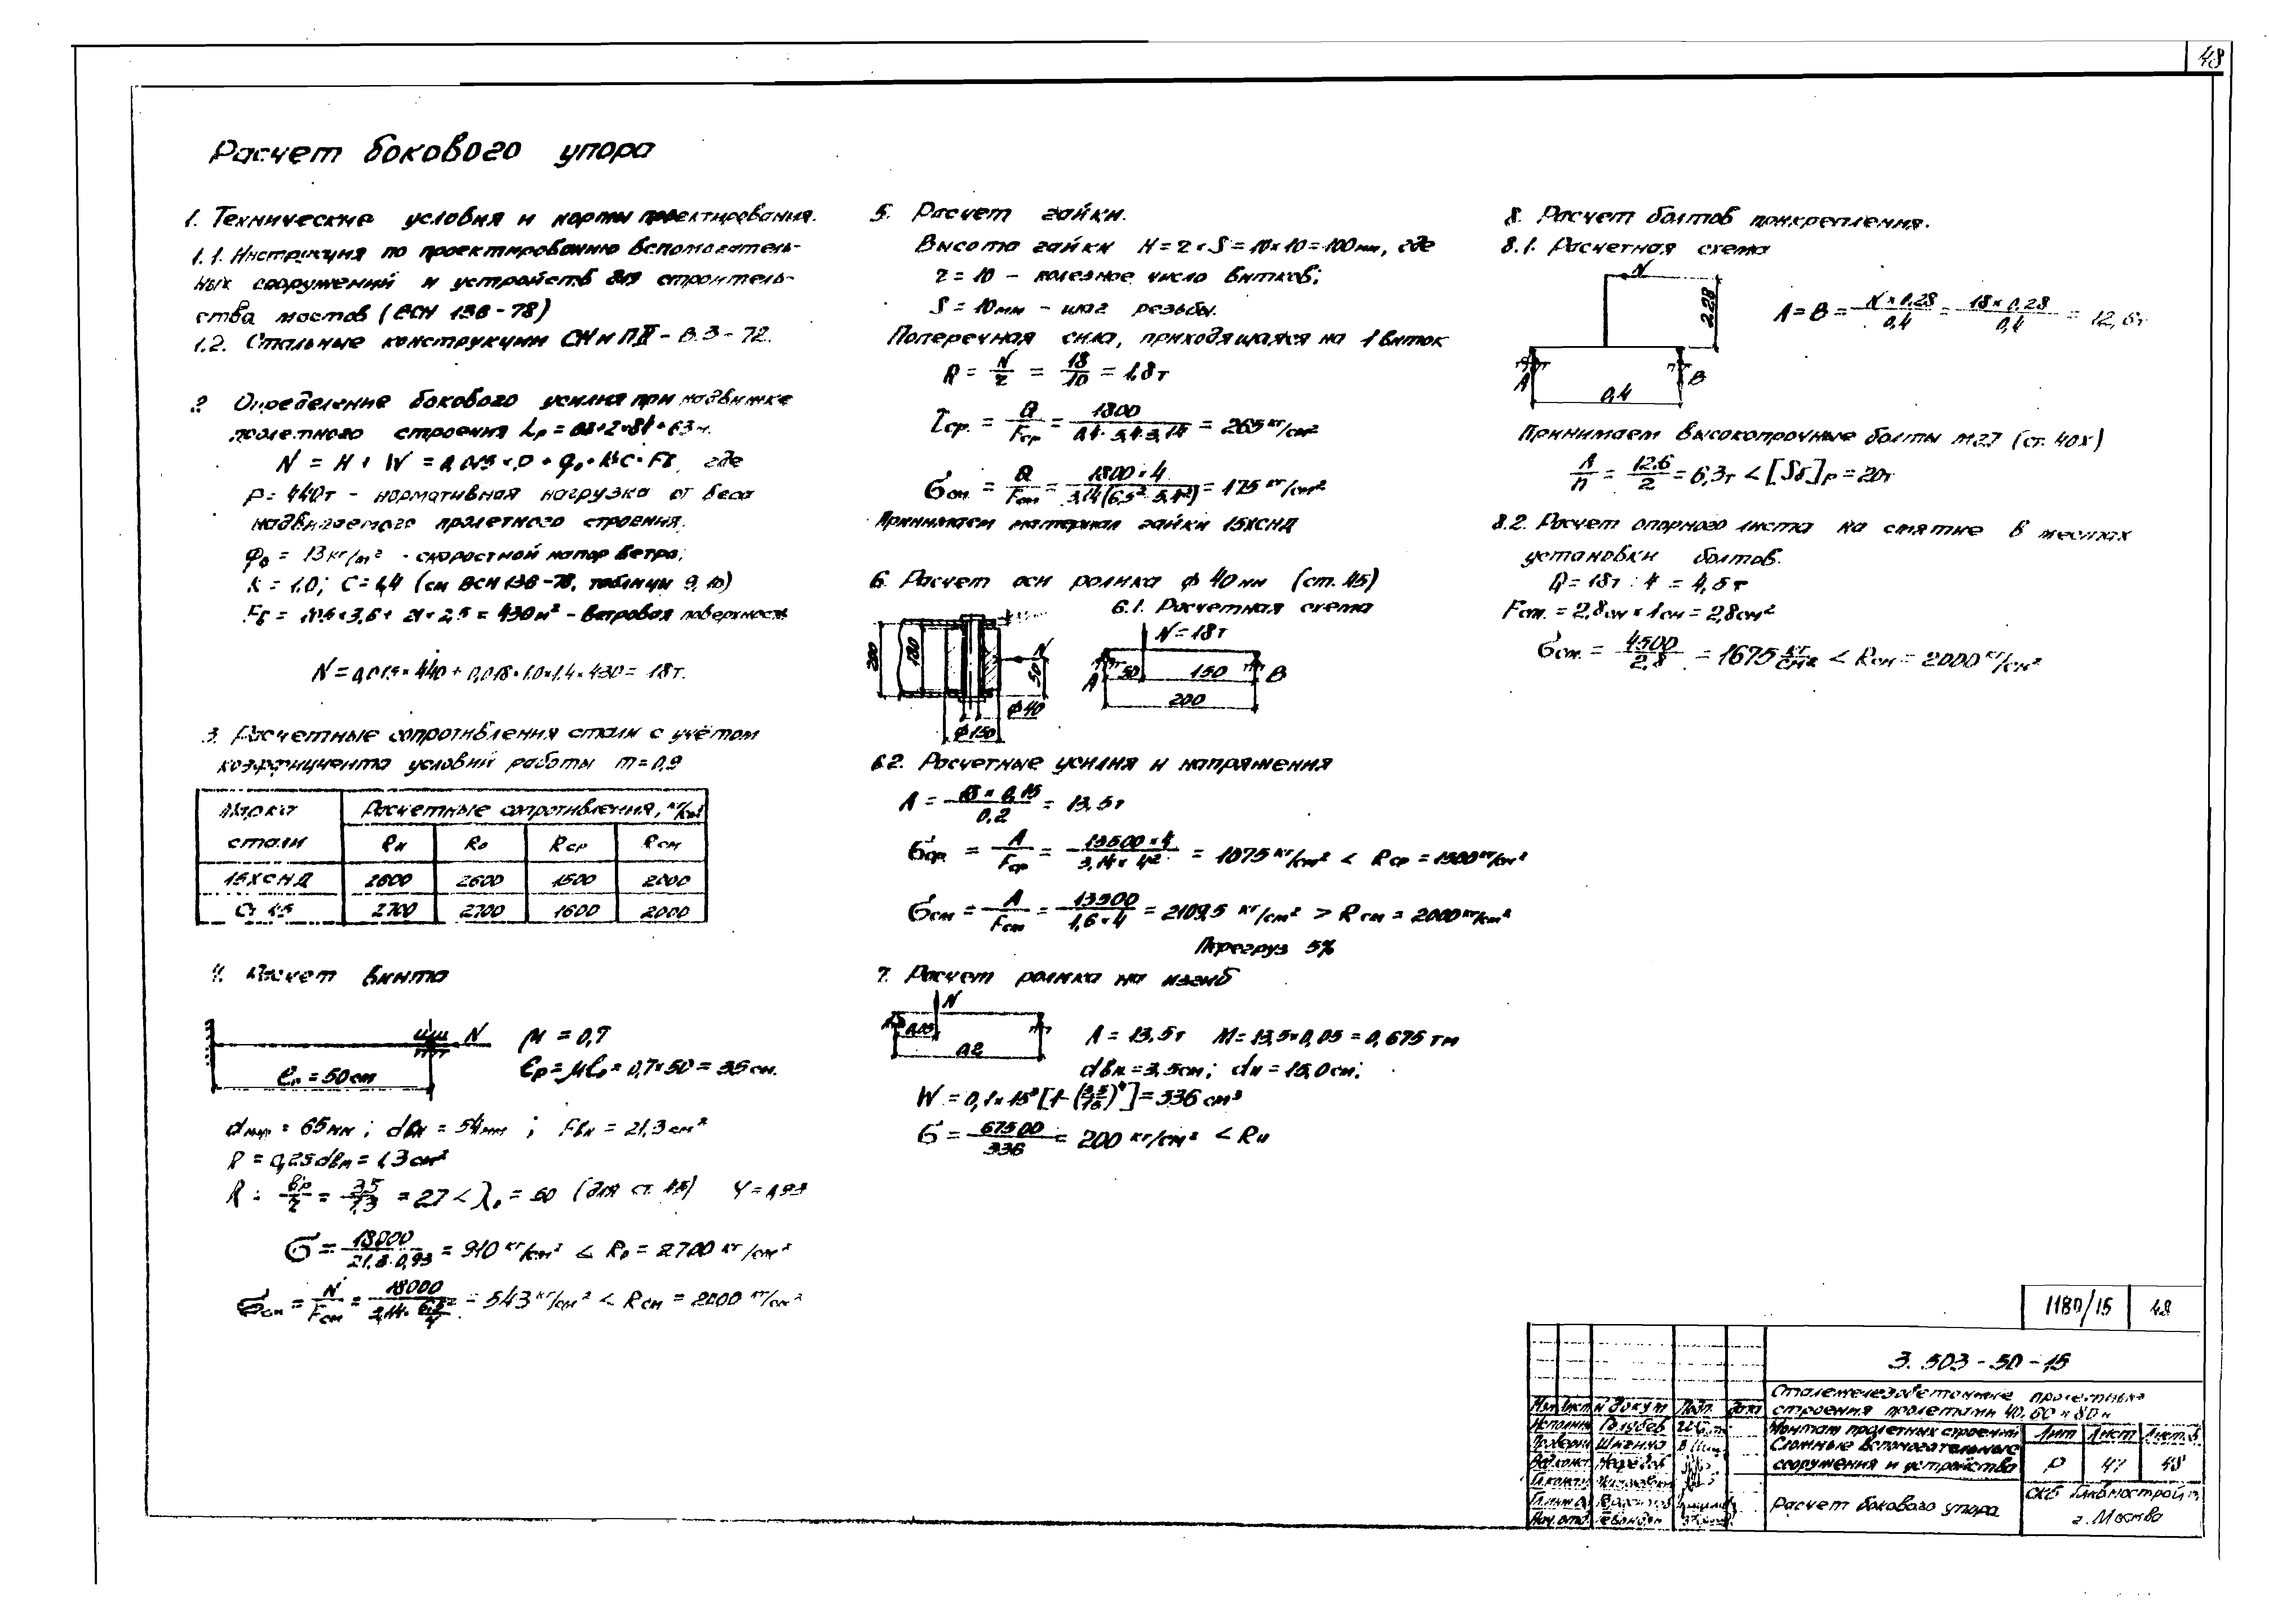 48
Расчет бокового упора
1. Технические условия и нормы проектирования.
1.1. Инструкция по проектированию вспомогатель-
ных сооружений и устройств для строитель-
ства мостов (ВСН 136-78)
1.2. Стальные конструкции СНиП II - В.3-72.
2 Определение бокового усилия при надвижке
пролетного строения Lр = 63+2×84+63м.
N = H + W = 0,015 × P + q₀ × K × C × Fв, где
P = 440т - нормативная нагрузка от веса
надвигаемого пролетного строения;
q₀ = 13 кг/м² - скоростной напор ветра;
K = 1,0; C = 1,4 (см ВСН 136-78, таблицы 9, 10)
×3,6 + 21×2,5 = 430 м² - ветровая поверхность
N = 0,015×440 + 0,018×1,0×1,4×430 = 18т.
3. Расчетные сопротивления стали с учётом
коэффициента условий работы m = 0,9
Марка стали Расчетные сопротивления, кг/см²
Rи Rо Rср Rсм
15ХСНД 2600 2600 1500 2000
Ст 45 2700 2700 1600 2000
4. Расчет винта
N
ℓ₀ = 50 см
μ = 0,7
ℓр = μℓ₀ = 0,7×50 = 35 см.
dнар = 65 мм; dвн = 54 мм; Fвн = 21,3 см²
= 0,25 dвн = 1,3 см²
= 27 < λ₀ = 60 (для ст. 45) φ = 0,93
σ = 18000 / 21,3·0,93 = 910 кг/см² < Rо = 2700 кг/см²
σсм = N / Fсм = 18000 / 3,14· 6,5² / 4 = 543 кг/см² < Rсм = 2000 кг/см²
5. Расчет гайки.
Высота гайки H = z × S = 10×10 = 100 мм, где
z = 10 - полезное число витков;
S = 10 мм - шаг резьбы.
Поперечная сила, приходящаяся на 1 виток
Q = N / z = 18 / 10 = 1,8т
τср. = Q / Fср = 1800 / 0,4·5,4·3,14 = 265 кг/см²
σсм = Q / Fсм = 1800 × 4 / 3,14(6,5² - 5,4²) = 175 кг/см²
Принимаем материал гайки 15ХСНД
6. Расчет оси ролика ф 40 мм (ст. 45)
6.1. Расчетная схема
200 180 N 50 ф 40 ф 150
N = 18т
50 150
A B
200
6.2. Расчетные усилия и напряжения
A = 18 × 0,15 / 0,2 = 13,5т
σср = A / Fср = 13500 × 4 / 3,14 × 4² = 1075 кг/см² < Rср = 1500 кг/см²
σсм = A / Fсм = 13500 / 1,6 × 4 = 2109,5 кг/см² > Rсм = 2000 кг/см²
Перегруз 5%
7. Расчет ролика на изгиб
N
0,05
0,2
A = 13,5т M = 13,5×0,05 = 0,675 тм
dвн = 3,5см; dн = 15,0см;
W = 0,1×15³ [1-(3,5/15)⁴] = 336 см³
σ = 67500 / 336 = 200 кг/см² < Rи
8. Расчет болтов прикрепления.
8.1. Расчетная схема
N
0,28
A B
0,4
A = B = N × 0,28 / 0,4 = 18 × 0,28 / 0,4 = 12,6т
Принимаем высокопрочные болты М27 (ст. 40Х)
A / n = 12,6 / 2 = 6,3т < [Sб]р = 20т
8.2. Расчет опорного листа на смятие в местах
установки болтов.
Q = 18т : 4 = 4,5т
Fсм. = 2,8см × 1см = 2,8см²
σсм. = 4500 / 2,8 = 1675 кг/см² < Rсм = 2000 кг/см²
1180/15 48
3.503-50-15
Сталежелезобетонные пролетные
строения пролетами 40, 60 и 80м
Монтаж пролетных строений
Сложные вспомогательные
сооружения и устройства
Лит Лист Листов
Р 47 48
Расчет бокового упора
СКБ Главмостройт
г. Москва
Изм Лист N докум Подп. Дата
Исполнил Голубев